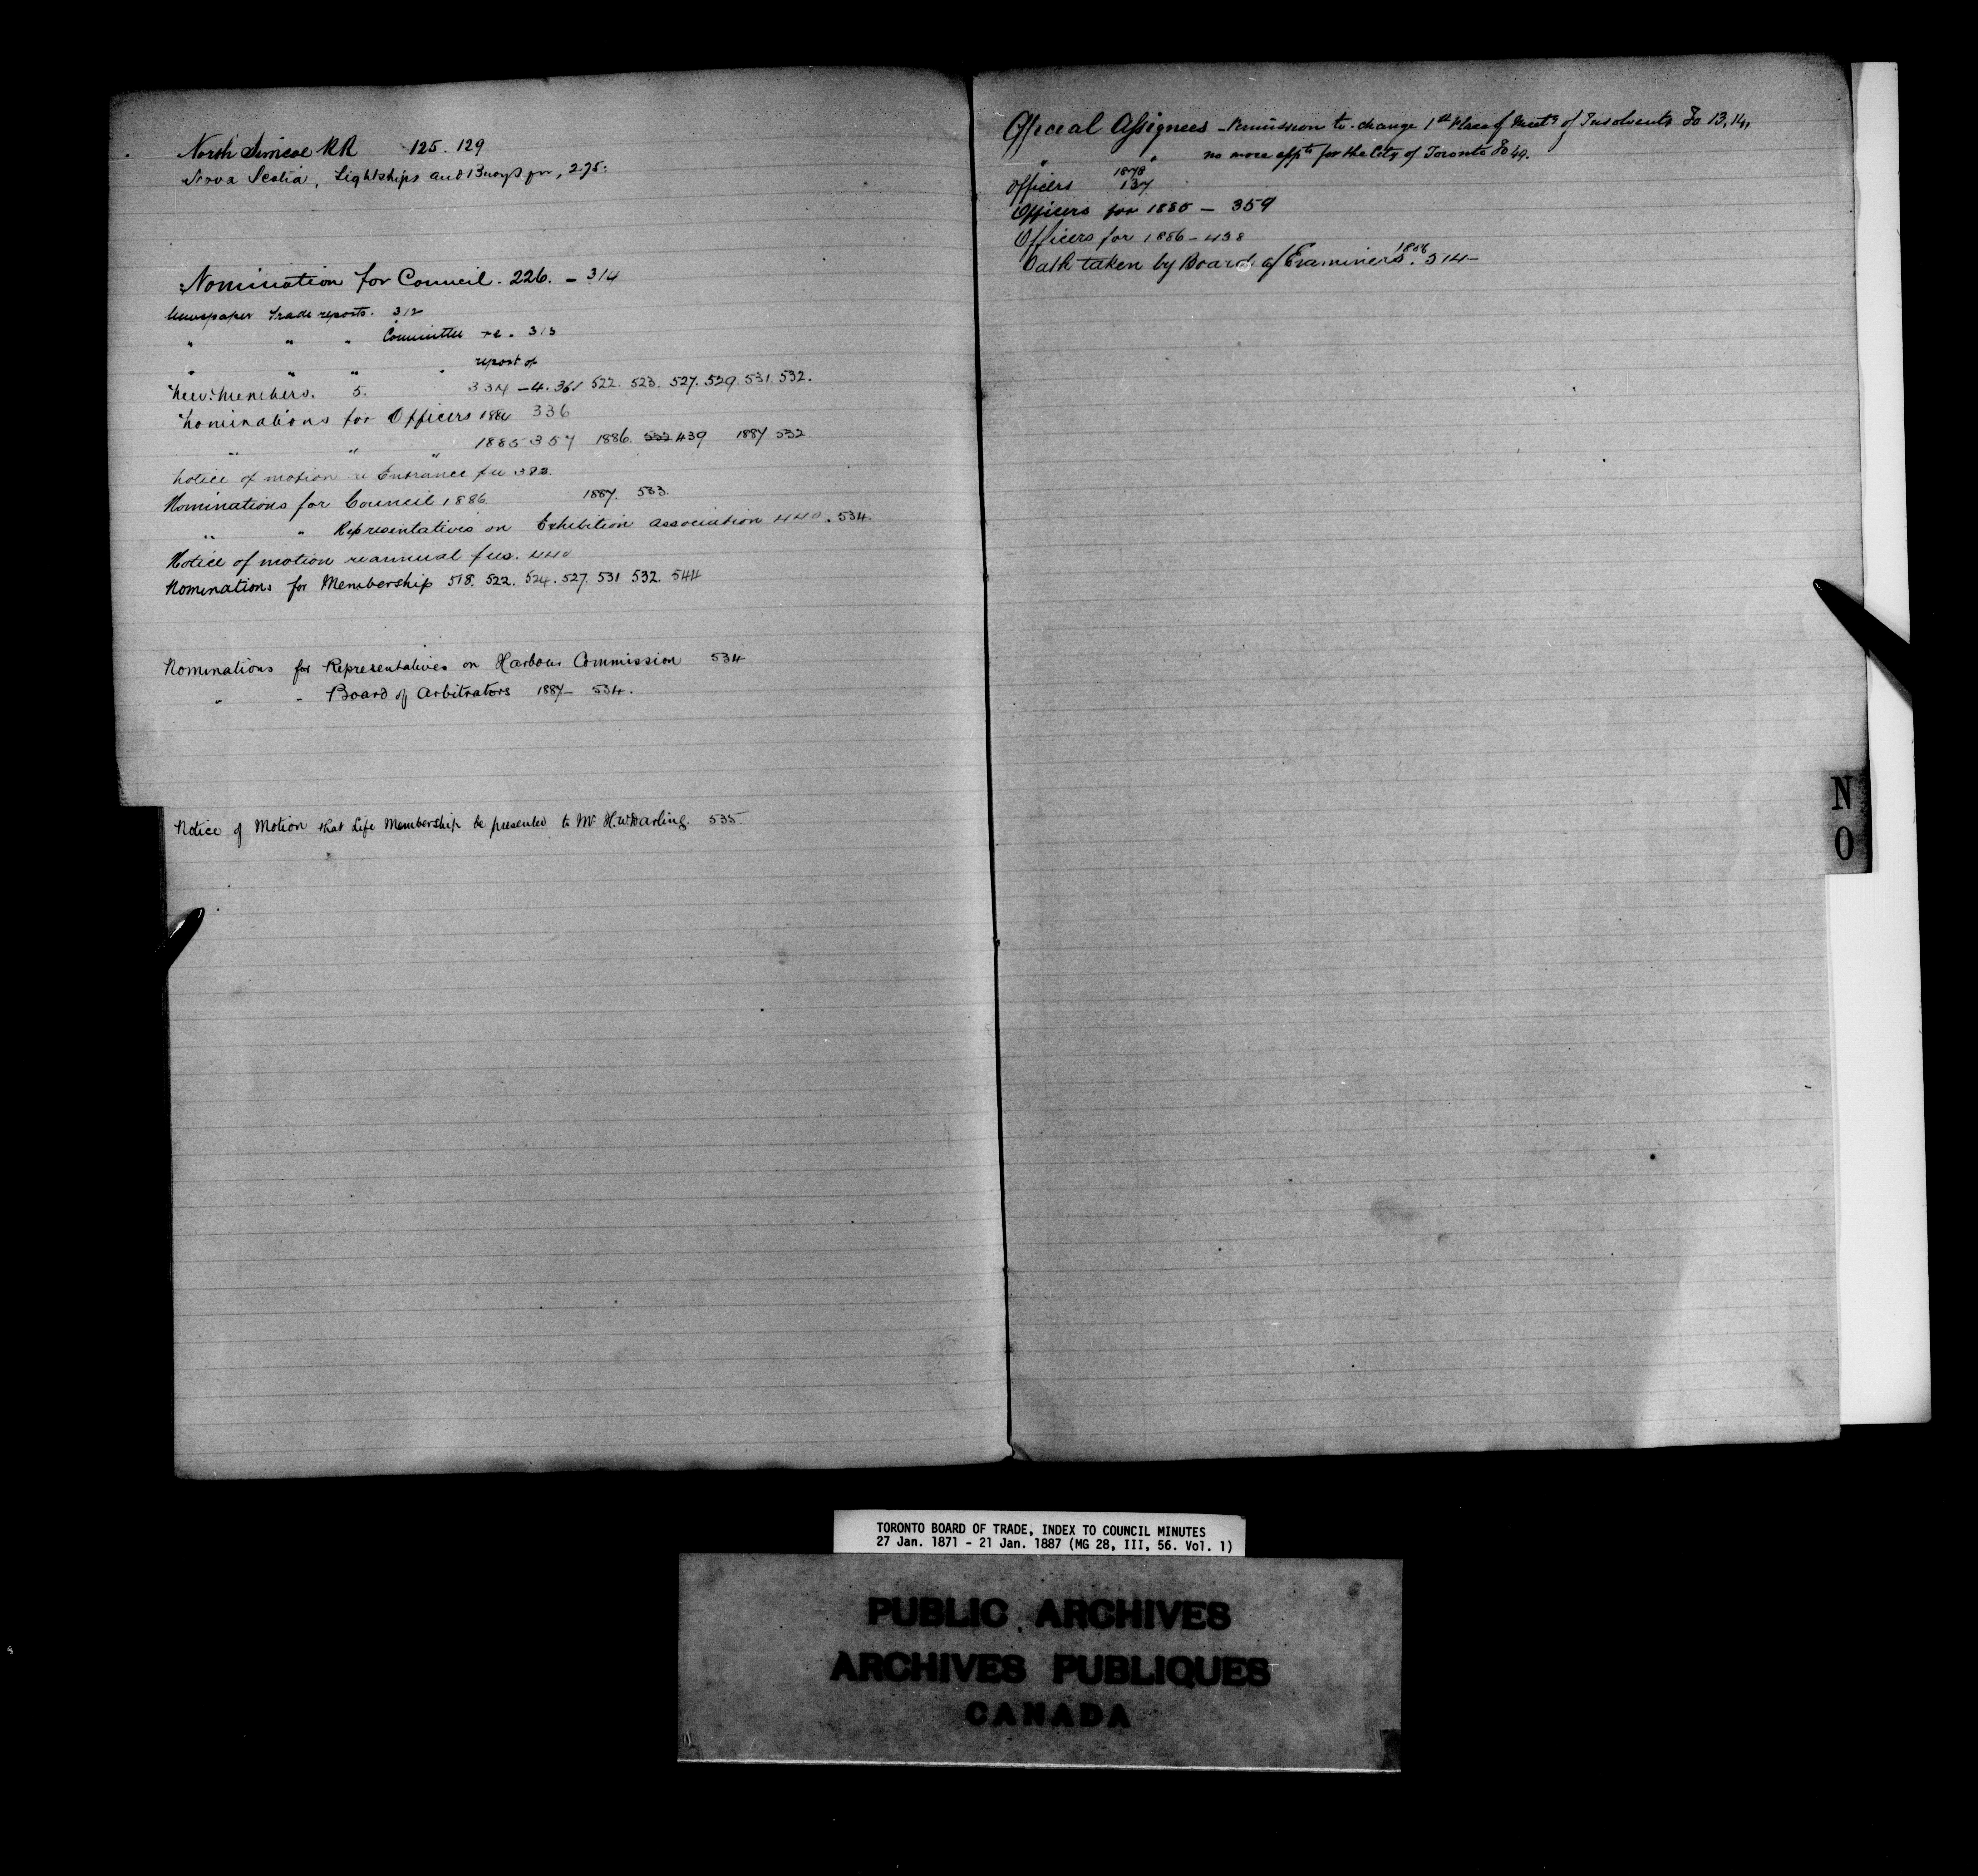 North Simcoe RR 125. 129
Nova Scotia, Lightships and Buoys for, 275.
Nomination for Council. 226. - 314
Newspaper Trade reports. 312
" " " Committee re. 313
" " " " report of
New Members. 5. 334 - 4. 361 522. 523. 527. 529. 531. 532.
Nominations for Officers 336
" " " 1885 357 1886. 532 439 1887 532.
Notice of motion re Entrance fee 383.
Nominations for Council 1886. 1887. 533.
" " Representatives on Exhibition Association 440. 534.
Notice of motion re annual fees. 440
Nominations for Membership 518. 522. 524. 527. 531 532. 544
Nominations for Representatives on Harbour Commission 534
" " Board of Arbitrators 1887- 534.
Notice of Motion that Life Membership be presented to Mr H.W Darling. 535.
Official Assignees - Permission to change 1st Place of Meetg of Insolvents Fo 13, 14,
" " no more appts for the City of Toronto Fo 49.
Officers 1878 137
Officers for 1885 - 359
Officers for 1886 - 438
Oath taken by Board of Examiners. 314-
N
O
TORONTO BOARD OF TRADE, INDEX TO COUNCIL MINUTES
27 Jan. 1871 - 21 Jan. 1887 (MG 28, III, 56. Vol. 1)
PUBLIC ARCHIVES
ARCHIVES PUBLIQUES
CANADA